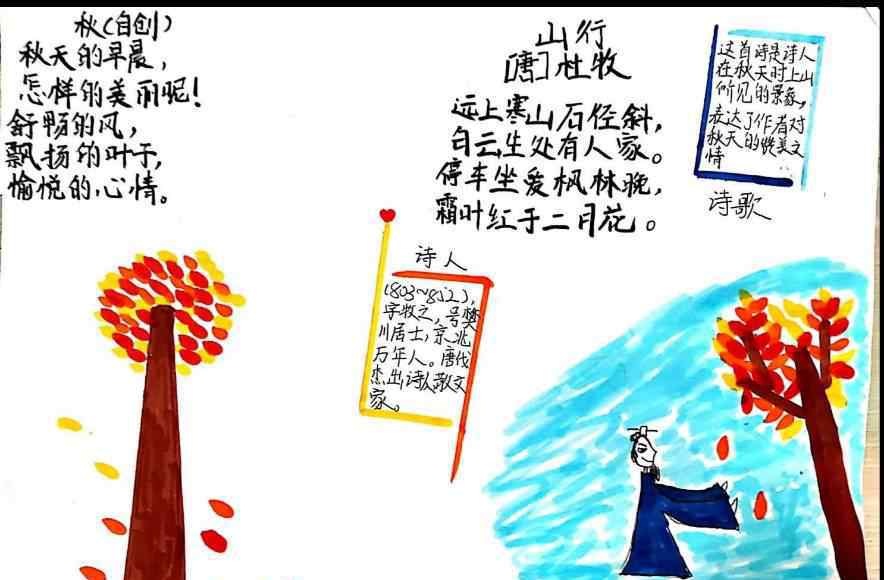 秋(自创)
秋天的早晨,
怎样的美丽呢!
舒畅的风,
飘扬的叶子,
愉悦的心情。
山行
[唐]杜牧
远上寒山石径斜,
白云生处有人家。
停车坐爱枫林晚,
霜叶红于二月花。
这首诗是诗人
在秋天时上山
所见的景象,
表达了作者对
秋天的赞美之
情
诗歌
诗人
(803~852),
字牧之,号樊
川居士,京兆
万年人。唐代
杰出诗人散文
家。